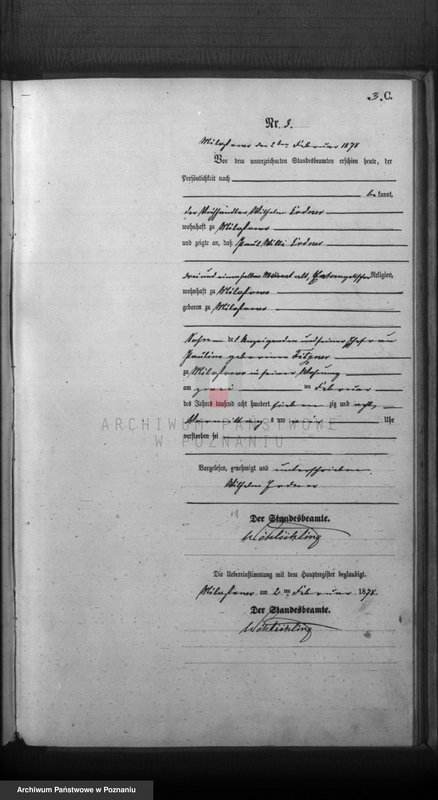 3. C.
Nr. 3.
Milostowo den 2 ten Februar 1878
Vor dem unterzeichneten Standesbeamten erschien heute, der
Persönlichkeit nach
bekannt,
der Wilhelm
wohnhaft zu Milostowo
und zeigte an, daß Paul Willi
drei und einen halben Monat alt, Evangelischer Religion,
wohnhaft zu Milostowo
geboren zu Milostowo
Sohn des Anzeigenden und seiner Ehefrau
Pauline geborenen
zu Milostowo in seiner Wohnung
am zwei ten Februar
des Jahres tausend acht hundert sieben zig und acht
Vormittags um Uhr
verstorben sei
ARCHIWUM PAŃSTWOWE
W POZNANIU
Vorgelesen, genehmigt und unterschrieben
Wilhelm
Der Standesbeamte.
Die Uebereinstimmung mit dem Hauptregister beglaubigt.
Milostowo am 2 ten Februar 1878
Der Standesbeamte.
Archiwum Państwowe w Poznaniu